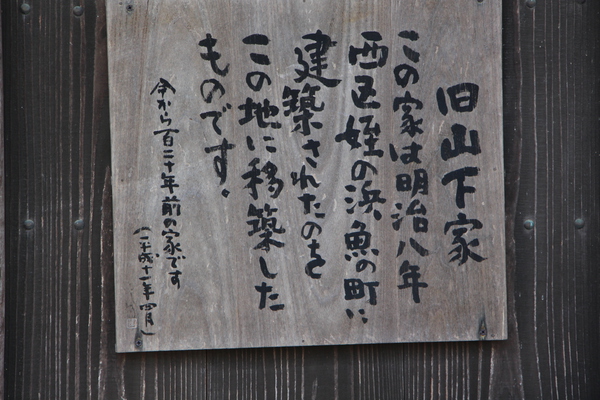 旧山下家
この家は明治八年
西区姪の浜魚の町に
建築されたのを
この地に移築した
ものです。
今から百二十年前の家です
(平成十一年四月)